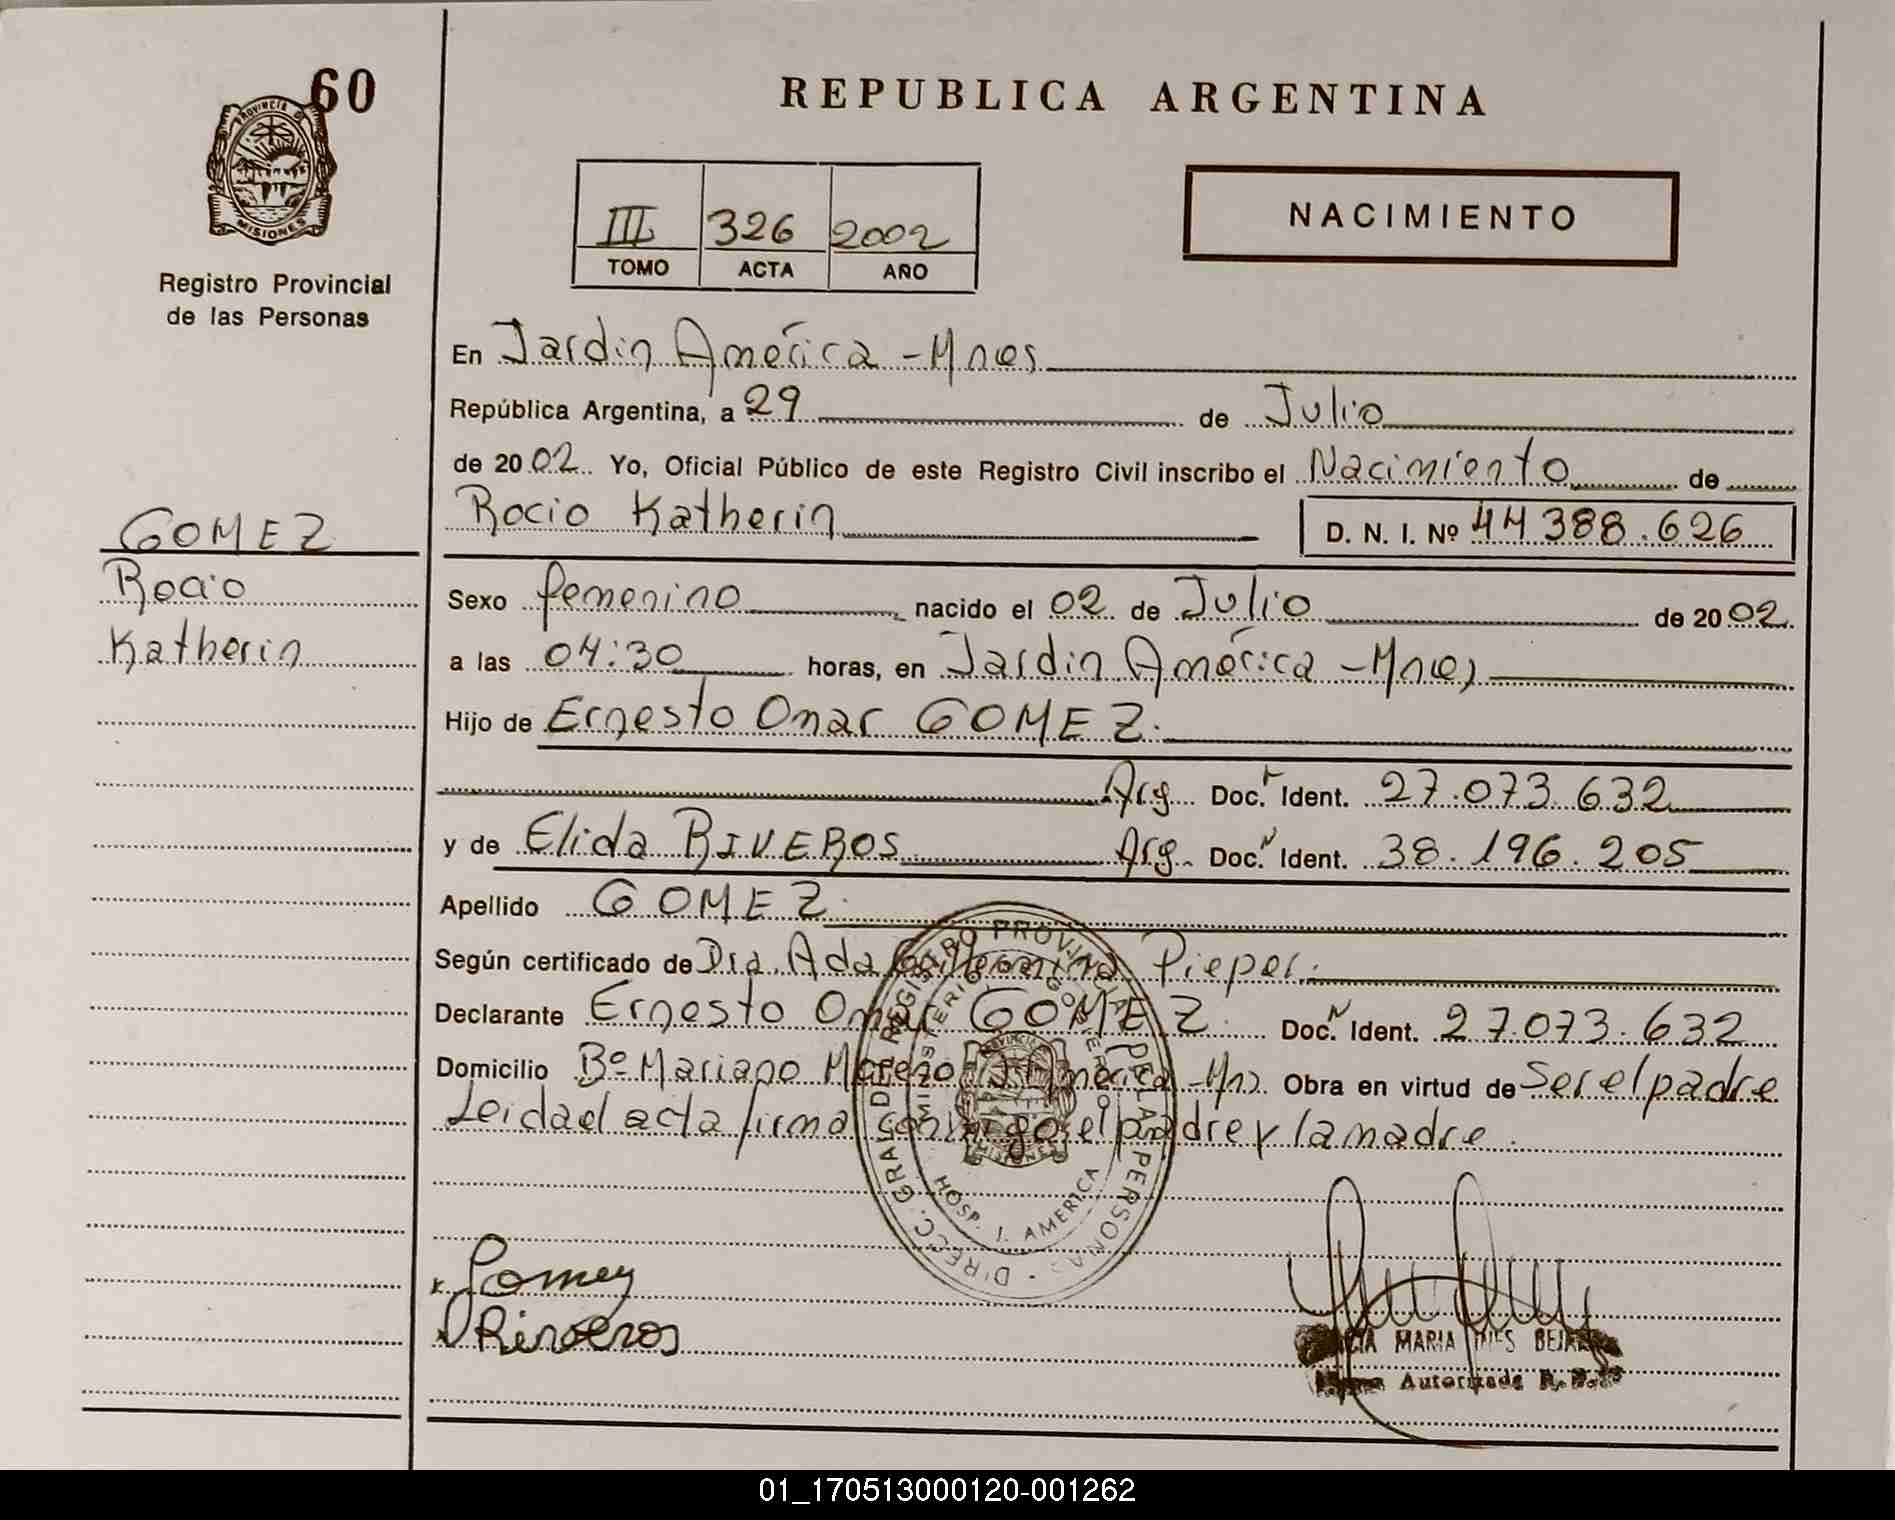 60
REPUBLICA ARGENTINA
PROVINCIA DE
MISIONES
Registro Provincial
de las Personas
III 326 2002
TOMO ACTA AÑO
NACIMIENTO
En Jardin América - Mnes
República Argentina, a 29 de Julio
de 2002 Yo, Oficial Público de este Registro Civil inscribo el Nacimiento de
Rocio Katherin D. N. I. Nº 44388.626
GOMEZ
Rocio
Katherin
Sexo femenino nacido el 02 de Julio de 2002
a las 04:30 horas, en Jardin América - Mnes
Hijo de Ernesto Omar GOMEZ.
Arg. Doc. Ident. 27.073.632
y de Elida RIVEROS Arg. Doc. Ident. 38.196.205
Apellido GOMEZ.
Según certificado de Dra. Ada Pieper.
Declarante Ernesto Omar GOMEZ Doc. Ident. 27.073.632
Domicilio Bº Mariano Moreno J. América - Mns. Obra en virtud de Ser el padre
Leida el acta firma conmigo el padre y la madre.
DIRECC. GRAL. DEL REGISTRO PROVINCIAL DE LAS PERSONAS
MINISTERIO DE GOBIERNO
PROVINCIA
MISIONES
HOSP. J. AMERICA
x Gomez
x Riveros
MARIA INES
Autorizada
01_170513000120-001262